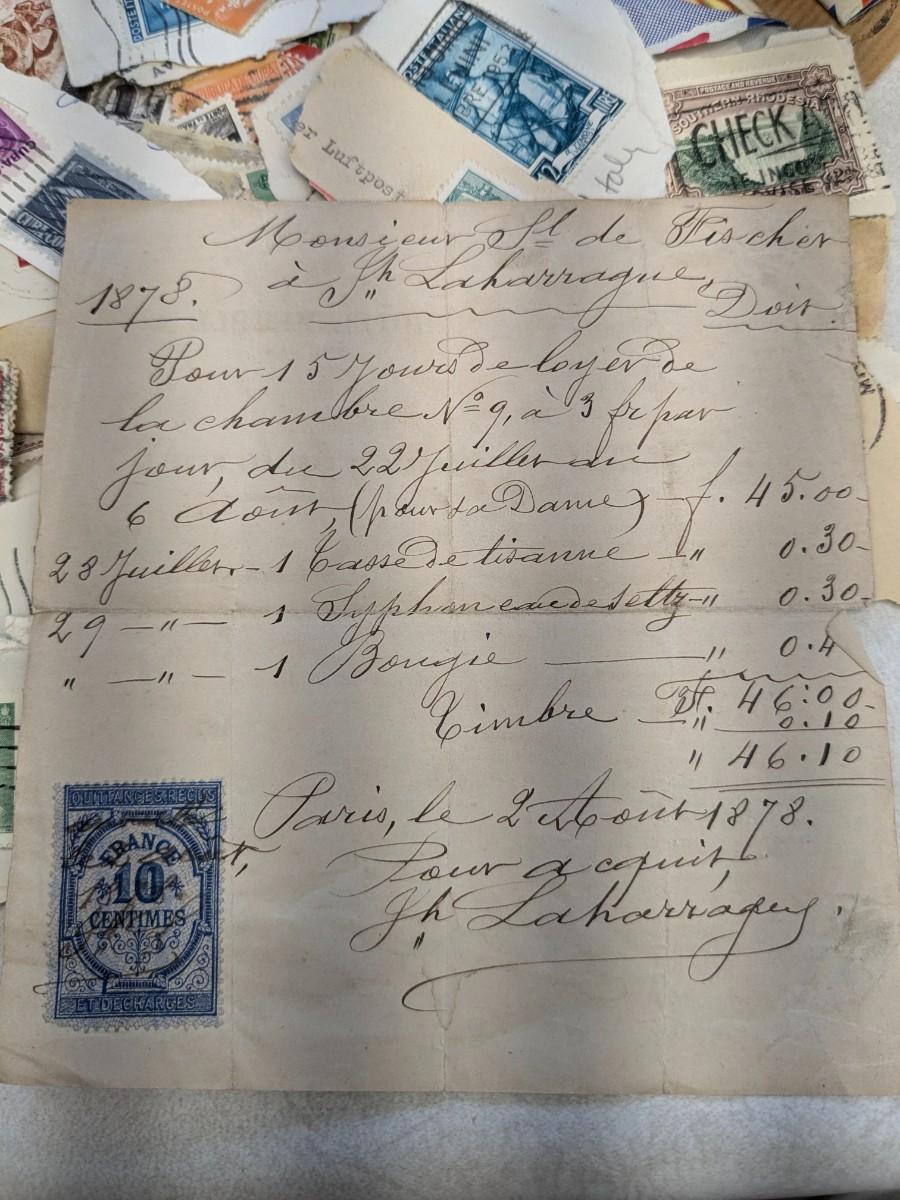 POSTE ITALIANE
LIRE
SOUTHERN RHODESIA
POSTAGE AND REVENUE
CHECK
er Luftpost
Italy
CUBA
Monsieur St de Fischer
à Jh Laharrague,
1878. Doit
Pour 15 Jours de loyer de
la chambre Nº 9, à 3 fr par
jour, du 22 Juillet au
6 Août, (pour sa Dame) — f. 45.00-
28 Juillet. - 1 Tasse de tisanne — " 0.30-
29 — " — 1 Syphon eau de seltz - " 0.30-
" — " — 1 Bougie — " 0.4
Fr. 46.00-
Timbre — " 0.10
" 46.10
Paris, le 2 Août 1878.
Pour acquit,
Jh Laharrague.
QUITTANCES REÇUS
FRANCE
10
CENTIMES
ET DECHARGES